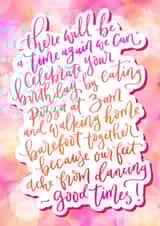 there will be
a time again we can
celebrate your
birthday by eating
pizza at 3am
and walking home
barefoot together
because our feet
ache from dancing
~ good times!